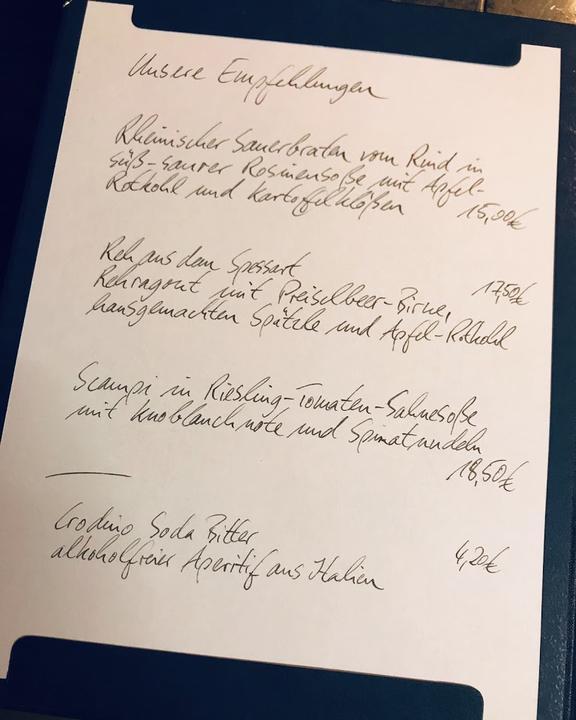 Unsere Empfehlungen
Rheinischer Sauerbraten vom Rind in
süß-saurer Rosinensoße mit Apfel-
Rotkohl und Kartoffelklößen 15,00€
Reh aus dem Spessart 17,50€
Rehragout mit Preiselbeer-Birne,
hausgemachten Spätzle und Apfel-Rotkohl
Scampi in Riesling-Tomaten-Sahnesoße
mit Knoblauchnote und Spinatnudeln
18,50€
Crodino Soda Bitter 4,20€
alkoholfreier Aperitif aus Italien